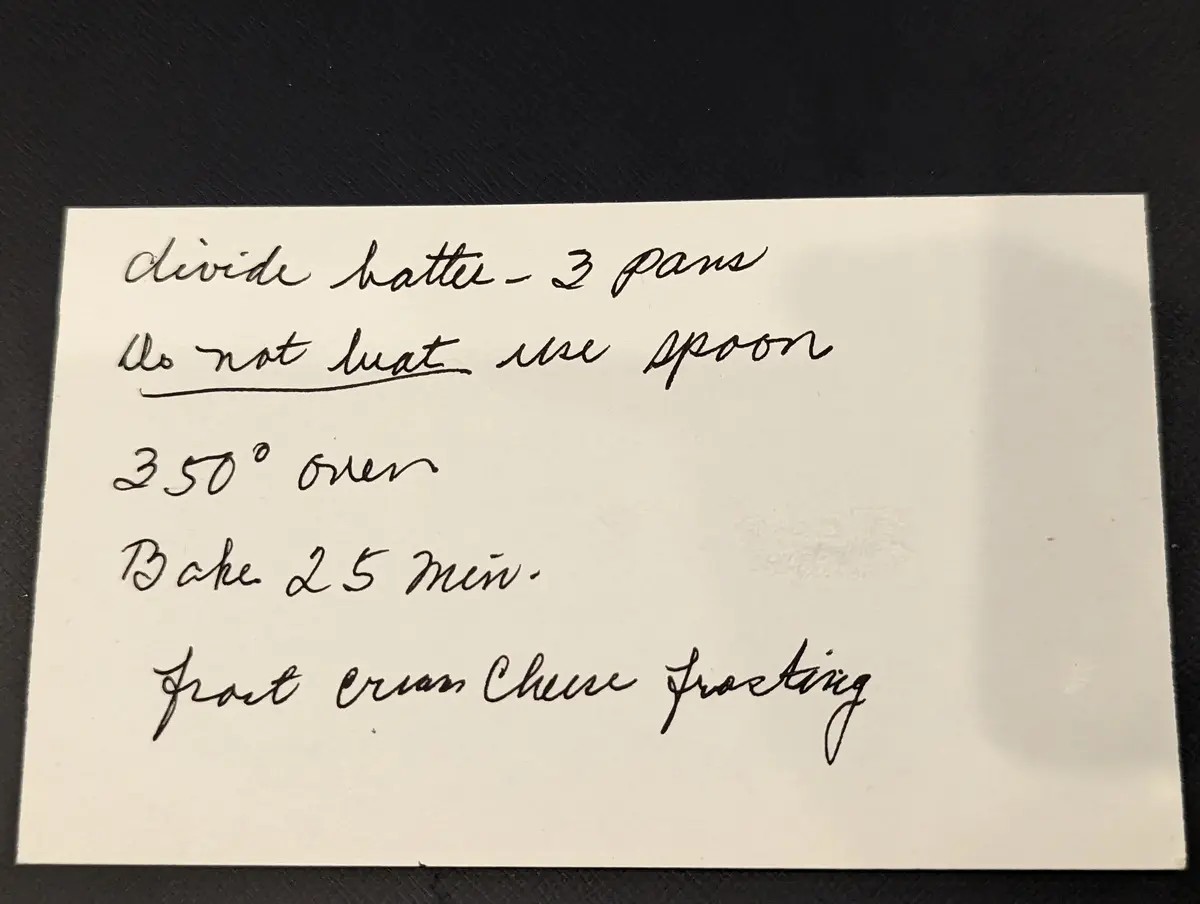 divide batter - 3 pans
Do not beat use spoon
350° oven
Bake 25 min.
frost cream Cheese frosting